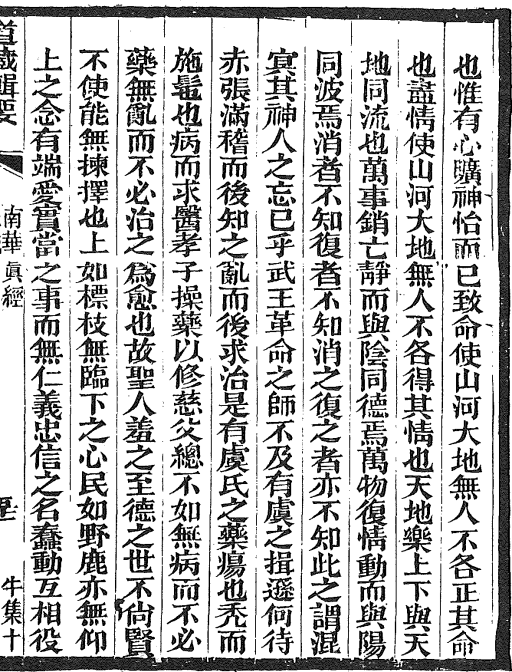 也惟有心曠神怡而已致命使山河大地無人不各正其命
也盡情使山河大地無人不各得其情也天地樂上下與天
地同流也萬事銷亡靜而與陰同德焉萬物復情動而與陽
同波焉消者不知復者不知消之復之者亦不知此之謂混
㝠其神人之忘已乎武王革命之師不及有虞之揖遜何待
赤張滿稽而後知之亂而後求治是有虞氏之藥瘍也禿而
施髢也病而求醫孝子操藥以修慈父總不如無病而不必
藥無亂而不必治之爲愈也故聖人羞之至德之世不尙賢
不使能無揀擇也上如標枝無臨下之心民如野鹿亦無仰
上之念有端愛實當之事而無仁義忠信之名蠢動互相役
道藏輯要 南華眞經 牛集十